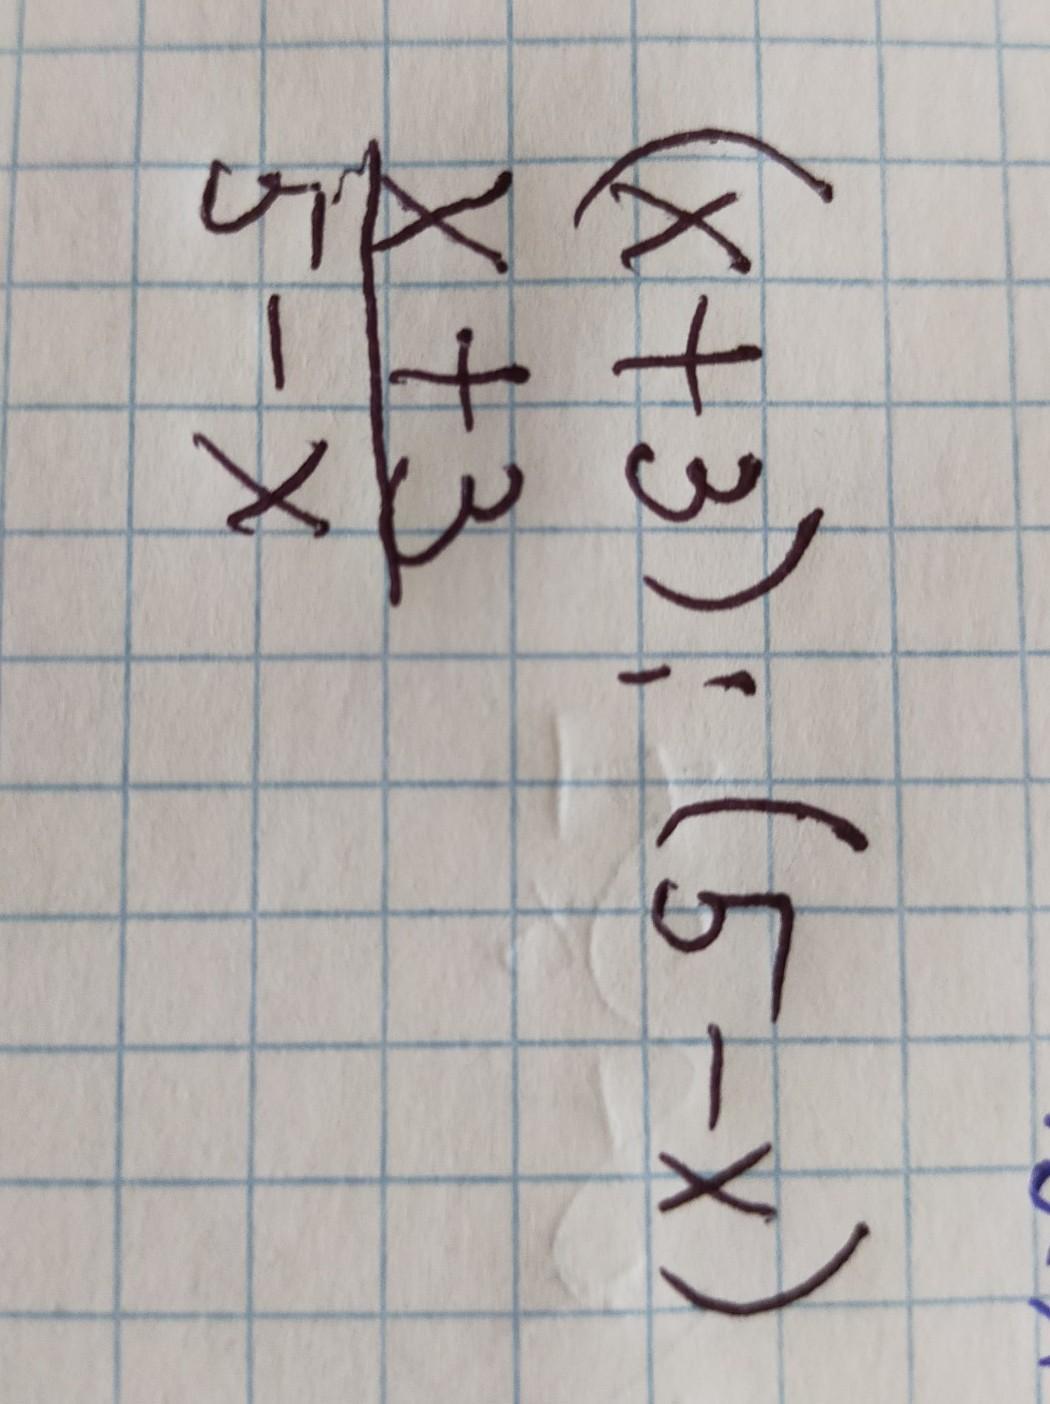 (x+3):(5-x)
x+3
5-x